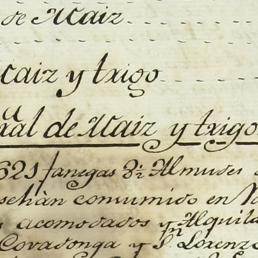 de Maiz
Maiz y trigo
ral de Maiz y trigo
621 fanegas 8½ Almudes
se han consumido en
acomodados y Alquila
Covadonga y Sn Lorenzo